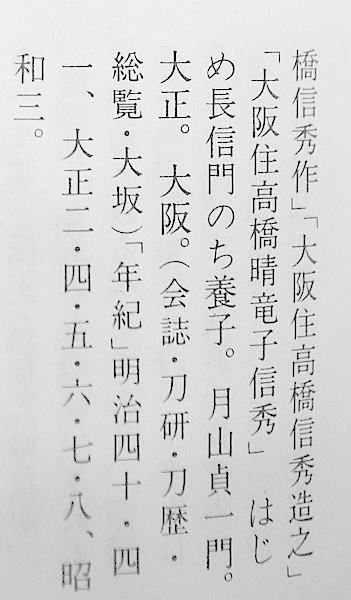 橋信秀作」「大阪住高橋信秀造之」
「大阪住高橋晴竜子信秀」　はじ
め長信門のち養子。月山貞一門。
大正。大阪。（会誌・刀研・刀歴・
総覧・大坂）「年紀」明治四十・四
一、大正二・四・五・六・七・八、昭
和三。